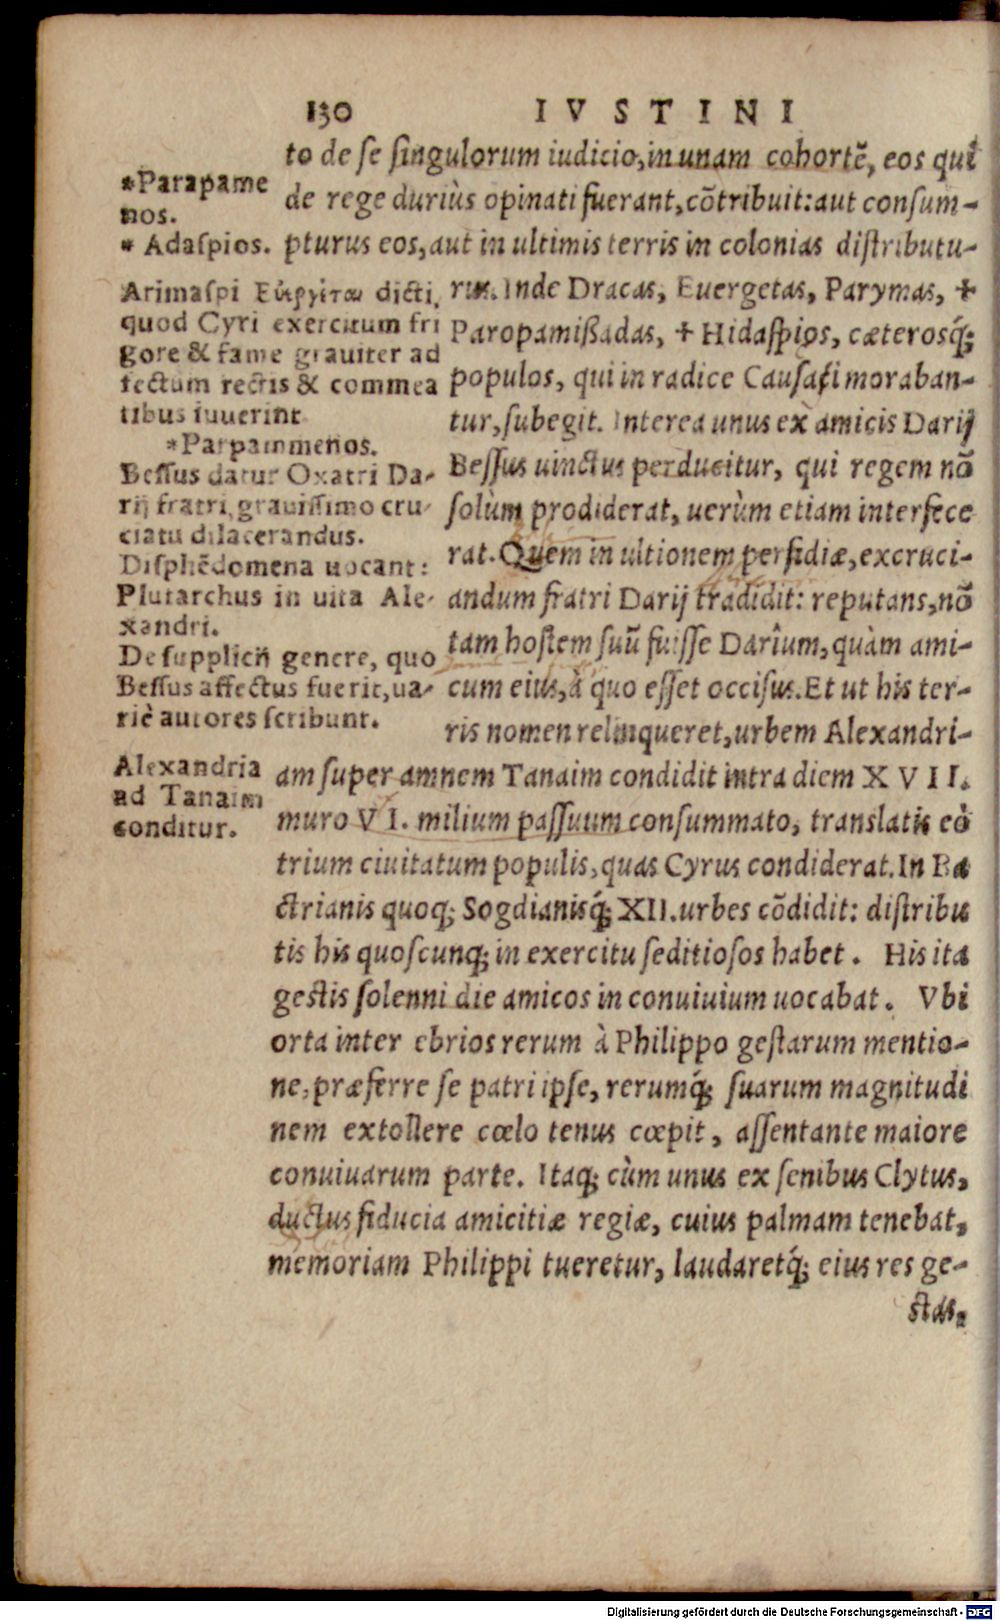 130 IVSTINI
to de se singulorum iudicio, in unam cohortē, eos qui
de rege duriùs opinati fuerant, cōtribuit: aut consum-
pturus eos, aut in ultimis terris in colonias distributu-
rus. Inde Dracas, Euergetas, Parymas, +
Paropamißadas, + Hidaspios, cæterosq́;
populos, qui in radice Causasi moraban-
tur, subegit. Interea unus ex amicis Darij
Bessus uinctus perducitur, qui regem nō
solùm prodiderat, uerùm etiam interfece
rat. Quem in ultionem perfidiæ, excruci-
andum fratri Darij tradidit: reputans, nō
tam hostem suū fuisse Darîum, quàm ami-
cum eius, à quo esset occisus. Et ut his ter-
ris nomen relinqueret, urbem Alexandri-
am super amnem Tanaim condidit intra diem XVII.
muro VI. milium passuum consummato, translatis eò
trium ciuitatum populis, quas Cyrus condiderat. In Ba
ctrianis quoq; Sogdianisq́; XII. urbes cōdidit: distribu
tis his quoscunq; in exercitu seditiosos habet. His ita
gestis solenni die amicos in conuiuium uocabat. Vbi
orta inter ebrios rerum à Philippo gestarum mentio-
ne, præferre se patri ipse, rerumq́; suarum magnitudi
nem extollere cœlo tenus cœpit, assentante maiore
conuiuarum parte. Itaq; cùm unus ex senibus Clytus,
ductus fiducia amicitiæ regiæ, cuius palmam tenebat,
memoriam Philippi tueretur, laudaretq́; eius res ge-
stas,
*Parapame
nos.
* Adaspios.
Arimaspi Εὐεργέται dicti,
quod Cyri exercitum fri
gore & fame grauiter ad
fectum tectis & commea
tibus iuuerint
*Parpammenos.
Bessus datur Oxatri Da-
rij fratri, grauissimo cru-
ciatu dilacerandus.
Disphēdomena uocant:
Plutarchus in uita Ale-
xandri.
De supplicij genere, quo
Bessus affectus fuerit, ua-
riè autores scribunt.
Alexandria
ad Tanaim
conditur.
Digitalisierung gefördert durch die Deutsche Forschungsgemeinschaft - DFG